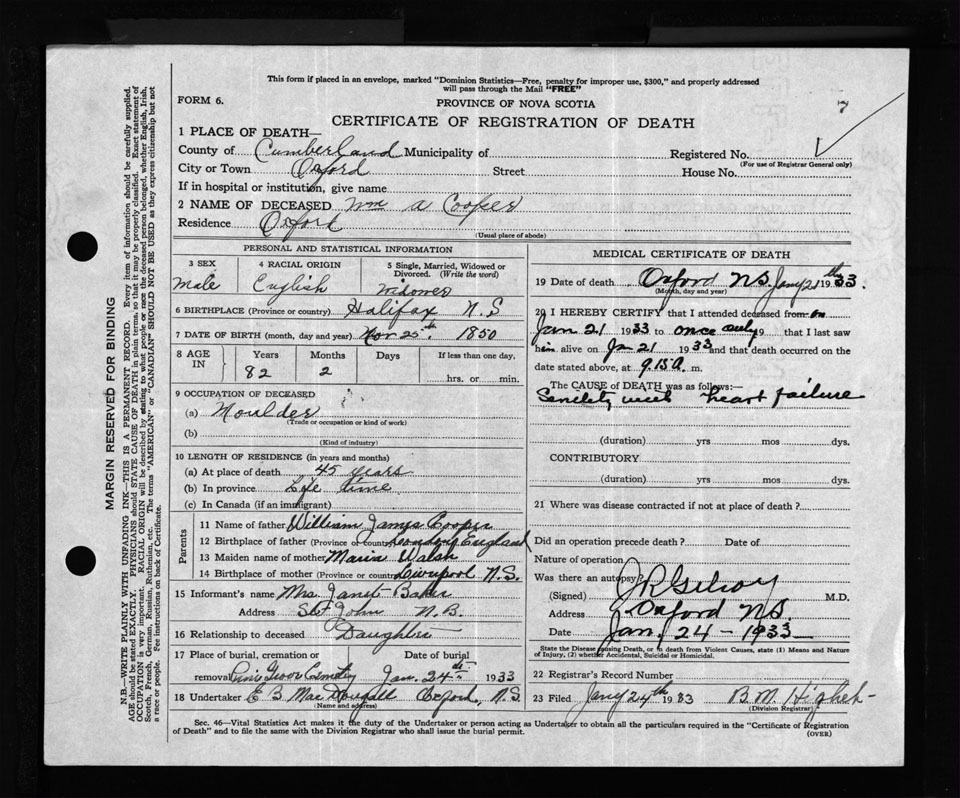 This form if placed in an envelope, marked "Dominion Statistics—Free, penalty for improper use, $300," and properly addressed
will pass through the Mail "FREE"
FORM 6.
PROVINCE OF NOVA SCOTIA
7
CERTIFICATE OF REGISTRATION OF DEATH
1 PLACE OF DEATH—
County of Cumberland Municipality of Registered No.
(For use of Registrar General only)
City or Town Oxford Street House No.
If in hospital or institution, give name
2 NAME OF DECEASED Wm A Cooper
Residence Oxford
(Usual place of abode)
PERSONAL AND STATISTICAL INFORMATION
3 SEX 4 RACIAL ORIGIN 5 Single, Married, Widowed or
Divorced. (Write the word)
Male English Widower
6 BIRTHPLACE (Province or country) Halifax N.S
7 DATE OF BIRTH (month, day and year) Nov 25th. 1850
8 AGE IN Years Months Days If less than one day,
82 2 hrs. or min.
9 OCCUPATION OF DECEASED
(a) Moulder
(Trade or occupation or kind of work)
(b)
(Kind of industry)
10 LENGTH OF RESIDENCE (in years and months)
(a) At place of death 45 years
(b) In province Life time
(c) In Canada (if an immigrant)
Parents
11 Name of father William James Cooper
12 Birthplace of father (Province or country) London England
13 Maiden name of mother Maria Walsh
14 Birthplace of mother (Province or country) Liverpool N.S.
15 Informant's name Mrs Janet Baker
Address St John N.B.
16 Relationship to deceased Daughter
17 Place of burial, cremation or Date of burial
removal Pine Grove Cemetery Jan. 24th 1933
18 Undertaker E B MacDougall Oxford, N.S
(Name and address)
MEDICAL CERTIFICATE OF DEATH
19 Date of death Oxford NS. Jany 21th 33.
(Month, day and year)
20 I HEREBY CERTIFY that I attended deceased from on
Jan 21 1933 to once only 19 that I last saw
him alive on Jn 21 1933 and that death occurred on the
date stated above, at 9.15 a. m.
The CAUSE of DEATH was as follows:—
Senility with heart failure
(duration) yrs mos dys.
CONTRIBUTORY
(duration) yrs mos dys.
21 Where was disease contracted if not at place of death?
Did an operation precede death? Date of
Nature of operation
Was there an autopsy?
(Signed) M.D.
Address Oxford NS.
Date Jan. 24 - 1933
State the Disease causing Death, or in death from Violent Causes, state (1) Means and
Nature of Injury, (2) whether Accidental, Suicidal or Homicidal.
22 Registrar's Record Number
23 Filed Jany 24th 1933 B.M.
(Division Registrar)
Sec. 46—Vital Statistics Act makes it the duty of the Undertaker or person acting as Undertaker to obtain all the particulars required in the "Certificate of Registration
of Death" and to file the same with the Division Registrar who shall issue the burial permit.
(OVER)
MARGIN RESERVED FOR BINDING
N.B.—WRITE PLAINLY WITH UNFADING INK—THIS IS A PERMANENT RECORD. Every item of information should be carefully supplied.
AGE should be stated EXACTLY. PHYSICIANS should STATE CAUSE OF DEATH in plain terms, so that it may be properly classified. Exact statement of
OCCUPATION is very important. RACIAL ORIGIN will be described by stating to what people or race the deceased person belonged, whether English, Irish,
Scotch, French, German, Russian, Ruthenian, etc. The terms "AMERICAN" or "CANADIAN" SHOULD NOT BE USED as they express citizenship but not
a race or people. Fee instructions on back of Certificate.